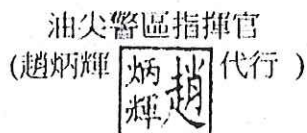 油尖警區指揮官
(趙炳輝 趙炳輝 代行)